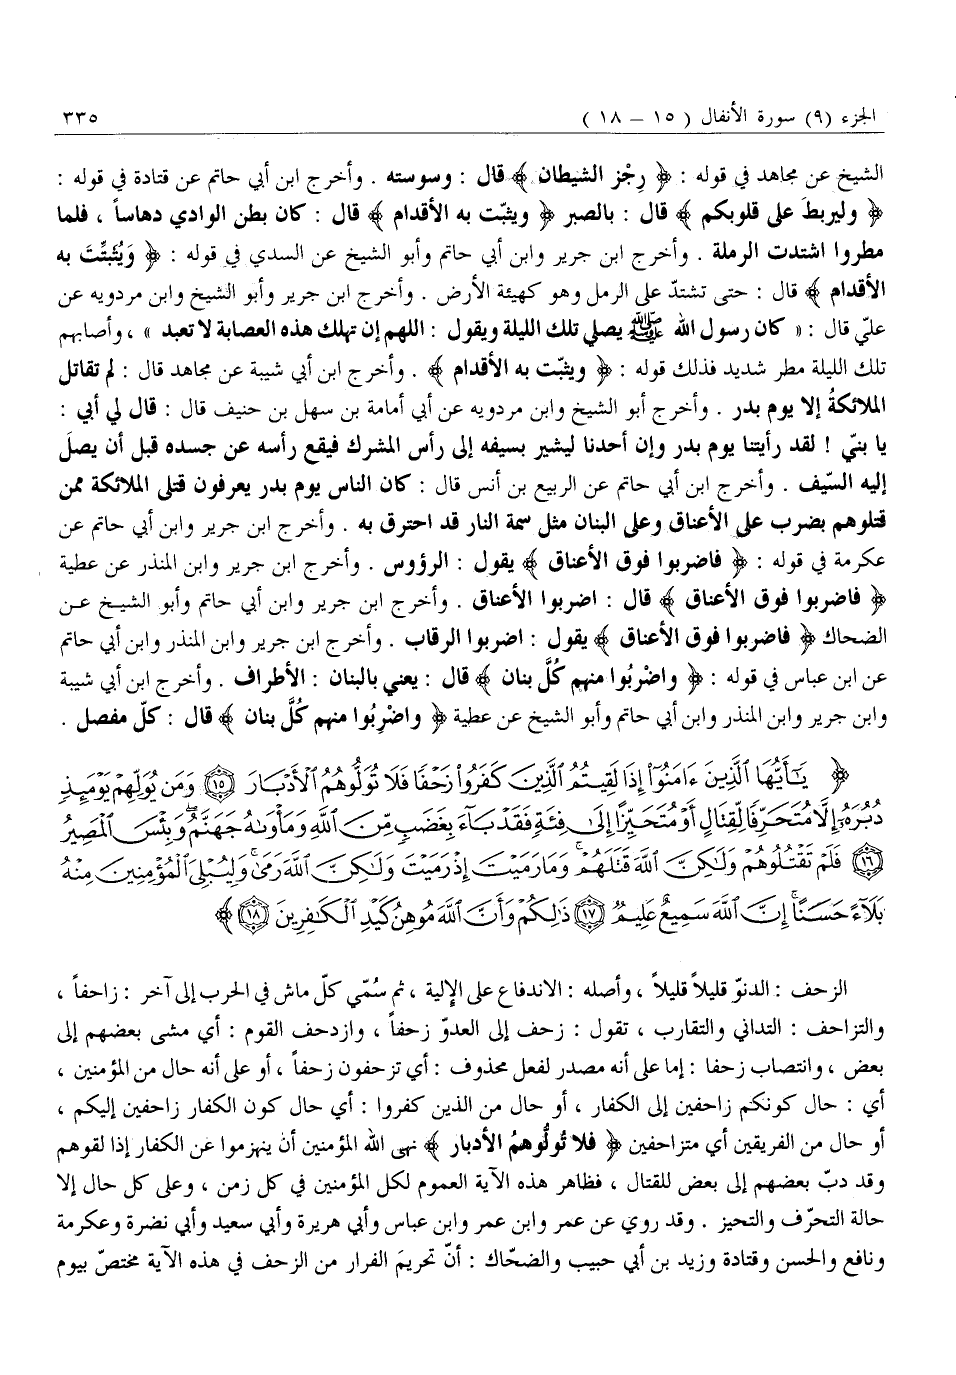 الجزء (٩) سورة الأنفال ( ١٥ – ١٨ ) ٣٣٥
الشيخ عن مجاهد في قوله : ﴿ رِجْز الشيطان ﴾ قال : وسوسته . وأخرج ابن أبي حاتم عن قتادة في قوله :
﴿ وليربطَ على قلوبكم ﴾ قال : بالصبر ﴿ ويثبّت به الأقدام ﴾ قال : كان بطن الوادي دهاساً ، فلما
مطروا اشتدت الرملة . وأخرج ابن جرير وابن أبي حاتم وأبو الشيخ عن السدي في قوله : ﴿ وَيُثَبِّتَ به
الأقدام ﴾ قال : حتى تشتدّ على الرمل وهو كهيئة الأرض . وأخرج ابن جرير وأبو الشيخ وابن مردويه عن
عليّ قال : « كان رسول الله ﷺ يصلي تلك الليلة ويقول : اللهم إن تهلك هذه العصابة لا تعبد » ، وأصابهم
تلك الليلة مطر شديد فذلك قوله : ﴿ ويثبّت به الأقدام ﴾ . وأخرج ابن أبي شيبة عن مجاهد قال : لم تقاتل
الملائكةُ إلا يوم بدر . وأخرج أبو الشيخ وابن مردويه عن أبي أمامة بن سهل بن حنيف قال : قال لي أبي :
يا بنيّ ! لقد رأيتنا يوم بدر وإن أحدنا ليشير بسيفه إلى رأس المشرك فيقع رأسه عن جسده قبل أن يصلَ
إليه السّيف . وأخرج ابن أبي حاتم عن الربيع بن أنس قال : كان الناس يوم بدر يعرفون قتلى الملائكة ممن
قتلوهم بضرب على الأعناق وعلى البنان مثل سمة النار قد احترق به . وأخرج ابن جرير وابن أبي حاتم عن
عكرمة في قوله : ﴿ فاضربوا فوق الأعناق ﴾ يقول : الرؤوس . وأخرج ابن جرير وابن المنذر عن عطية
﴿ فاضربوا فوق الأعناق ﴾ قال : اضربوا الأعناق . وأخرج ابن جرير وابن أبي حاتم وأبو الشيخ عن
الضحاك ﴿ فاضربوا فوق الأعناق ﴾ يقول : اضربوا الرقاب . وأخرج ابن جرير وابن المنذر وابن أبي حاتم
عن ابن عباس في قوله : ﴿ واضْرِبُوا منهم كُلَّ بنان ﴾ قال : يعني بالبنان : الأطراف . وأخرج ابن أبي شيبة
وابن جرير وابن المنذر وابن أبي حاتم وأبو الشيخ عن عطية ﴿ واضْرِبُوا منهم كُلَّ بنان ﴾ قال : كلّ مفصل .
﴿ يَٰٓأَيُّهَا ٱلَّذِينَ ءَامَنُوٓا۟ إِذَا لَقِيتُمُ ٱلَّذِينَ كَفَرُوا۟ زَحْفًا فَلَا تُوَلُّوهُمُ ٱلْأَدْبَارَ ١٥ وَمَن يُوَلِّهِمْ يَوْمَئِذٍ
دُبُرَهُۥٓ إِلَّا مُتَحَرِّفًا لِّقِتَالٍ أَوْ مُتَحَيِّزًا إِلَىٰ فِئَةٍ فَقَدْ بَآءَ بِغَضَبٍ مِّنَ ٱللَّهِ وَمَأْوَىٰهُ جَهَنَّمُ ۖ وَبِئْسَ ٱلْمَصِيرُ
١٦ فَلَمْ تَقْتُلُوهُمْ وَلَٰكِنَّ ٱللَّهَ قَتَلَهُمْ ۚ وَمَا رَمَيْتَ إِذْ رَمَيْتَ وَلَٰكِنَّ ٱللَّهَ رَمَىٰ ۚ وَلِيُبْلِىَ ٱلْمُؤْمِنِينَ مِنْهُ
بَلَآءً حَسَنًا ۚ إِنَّ ٱللَّهَ سَمِيعٌ عَلِيمٌ ١٧ ذَٰلِكُمْ وَأَنَّ ٱللَّهَ مُوهِنُ كَيْدِ ٱلْكَٰفِرِينَ ١٨ ﴾
الزحف : الدنوّ قليلاً قليلاً ، وأصله : الاندفاع على الإلية ، ثم سُمّي كلّ ماش في الحرب إلى آخر : زاحفاً ،
والتزاحف : التداني والتقارب ، تقول : زحف إلى العدوّ زحفاً ، وازدحف القوم : أي مشى بعضهم إلى
بعض ، وانتصاب زحفا : إما على أنه مصدر لفعل محذوف : أي تزحفون زحفاً ، أو على أنه حال من المؤمنين ،
أي : حال كونكم زاحفين إلى الكفار ، أو حال من الذين كفروا : أي حال كون الكفار زاحفين إليكم ،
أو حال من الفريقين أي متزاحفين ﴿ فلا تُولُّوهمُ الأدبار ﴾ نهى الله المؤمنين أن ينهزموا عن الكفار إذا لقوهم
وقد دبّ بعضهم إلى بعض للقتال ، فظاهر هذه الآية العموم لكل المؤمنين في كل زمن ، وعلى كل حال إلا
حالة التحرّف والتحيز . وقد روي عن عمر وابن عمر وابن عباس وأبي هريرة وأبي سعيد وأبي نضرة وعكرمة
ونافع والحسن وقتادة وزيد بن أبي حبيب والضحّاك : أنّ تحريمَ الفرار من الزحف في هذه الآية مختصّ بيوم